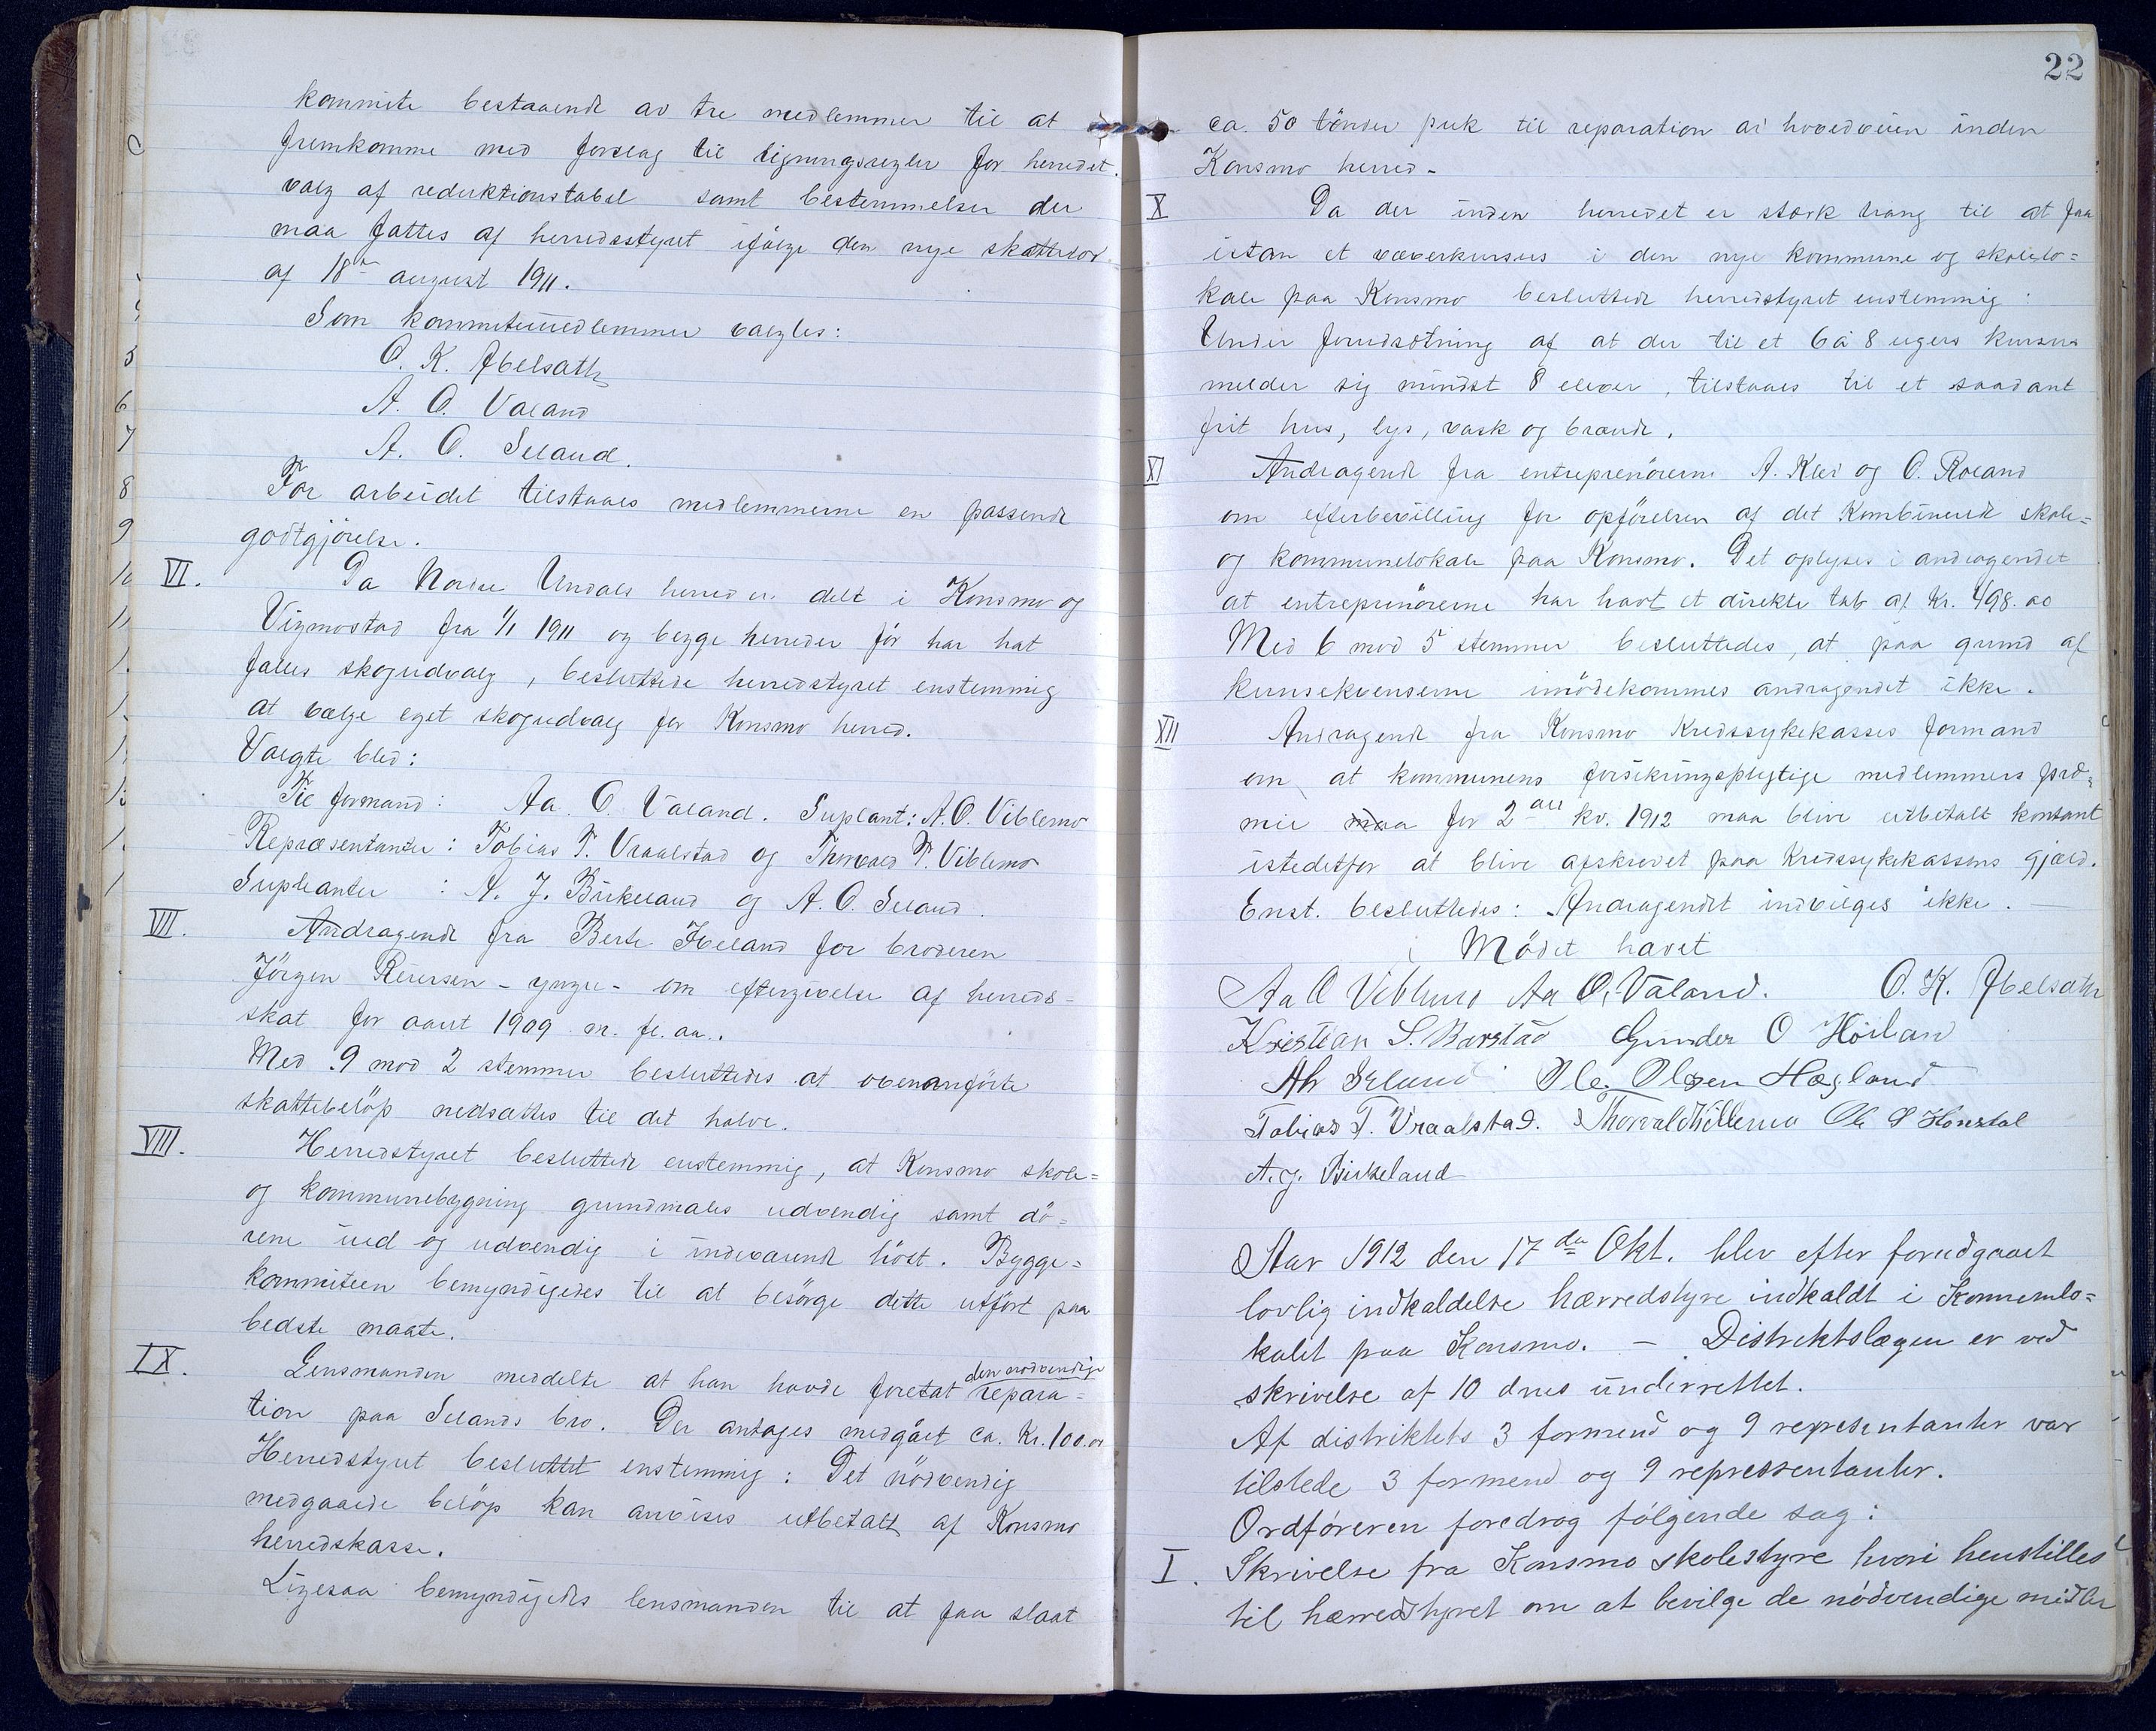 kommite bestaaende av tre medlemmer til at
fremkomme med forslag til ligningsregler for herredet.
valg af reduktionstabel samt bestemmelser der
maa fattes af herredsstyret ifølge den nye skattelov
af 18de august 1911.
Som kommitemedlemmer valgtes:
O. K. Ibelsath
A. O. Valand
A. O. Seland.
For arbeidet tilstaaes medlemmerne en passende
godtgjørelse.
VI. Da Nordre Undals herred er delt i Konsmo og
Vigmostad fra 1/1 1911 og begge herreder før har hat
fælles skogudvalg, besluttede herredstyret enstemmig
at vælge eget skogudvalg for Konsmo herred.
Valgte blev:
Til formand: Aa. O. Valand. Suplant: A. O. Viblemo
Repræsentanter: Tobias T. Vraalstad og Thorvald T. Viblemo
Supleanter: A. J. Birkeland og A. O. Seland.
VII. Andragende fra Berte for broderen
Jörgen Reiersen - yngre - om eftergivelse af herreds-
skat for aaret 1909 m. fl. aa..
Med 9 mod 2 stemmer besluttedes at ovenanførte
skattebeløp nedsattes til det halve.
VIII. Herredstyret besluttede enstemmig, at Konsmo skole=
og kommunebygning grundmales udvendig samt dö=
rene ind og udvendig i indeværende höst. Bygge=
kommiteen bemyndigedes til at besörge dette utfört paa
bedste maate.
IX. Lensmanden meddelte at han havde foretat den nødvendige repara=
tion paa Selands bro. Der antages medgået ca. Kr. 100.00
Herredstyret besluttet enstemmig: Det nödvendig
medgaaede belöp kan anvises utbetalt af Konsmo
herredskasse.
Ligesaa bemyndigedes lensmanden til at faa slaat
22
ca. 50 tönder puk til reparation av hovedveien inden
Konsmo herred.
X Da der inden herredet er stærk trang til at faa
istan et væverkursus i den nye kommune og skolelo=
kale paa Konsmo besluttede herredstyret enstemmig:
Under forudsætning af at der til et 6 á 8 ugers kursus
melder sig mindst 8 elever, tilstaaes til et saadant
frit hus, lys, vask og brænde.
XI Andragende fra entreprenörerne A. Klev og O. Roland
om efterbevilling for opförelsen af det kombinerede skole=
og kommunelokale paa Konsmo. Det oplyses i andragendet
at entreprenörerne har havt et direkte tab af Kr. 498.00
Med 6 mod 5 stemmer besluttedes, at paa grund af
kunsekvenserne imödekommes andragendet ikke.
XII Andragende fra Konsmo Kredssykekasses formand
om at kommunens forsikringspligtige medlemmers præ=
mie maa for 2det kv. 1912 maa blive utbetalt kontant
istedetfor at blive afskrevet paa Kredssykekassens gjæld.
Enst. besluttedes: Andragendet indvilges ikke. —
Mödet hævet
Aa O Viblemo Aa O. Valand. O. K. Ibelsath
Kristian S. Barstad Gunder O Höiland
Ah Seland Ole Olsen Hægland
Tobias T. Vraalstad. Thorvald Viblemo Ole
A. J. Birkeland
Aar 1912 den 17de Okt. blev efter forudgaaet
lovlig indkaldelse hærredstyre indkaldt i Kommunlo=
kalet paa Konsmo. — Distriktslægen er ved
skrivelse af 10 dnes underrettet.
Af distriktets 3 formend og 9 representanter var
tilstede 3 formend og 9 repressentanter.
Ordföreren foredrog fölgende sag:
I. Skrivelse fra Konsmo skolestyre hvori henstilles
til hærredstyret om at bevilge de nödvendige midler